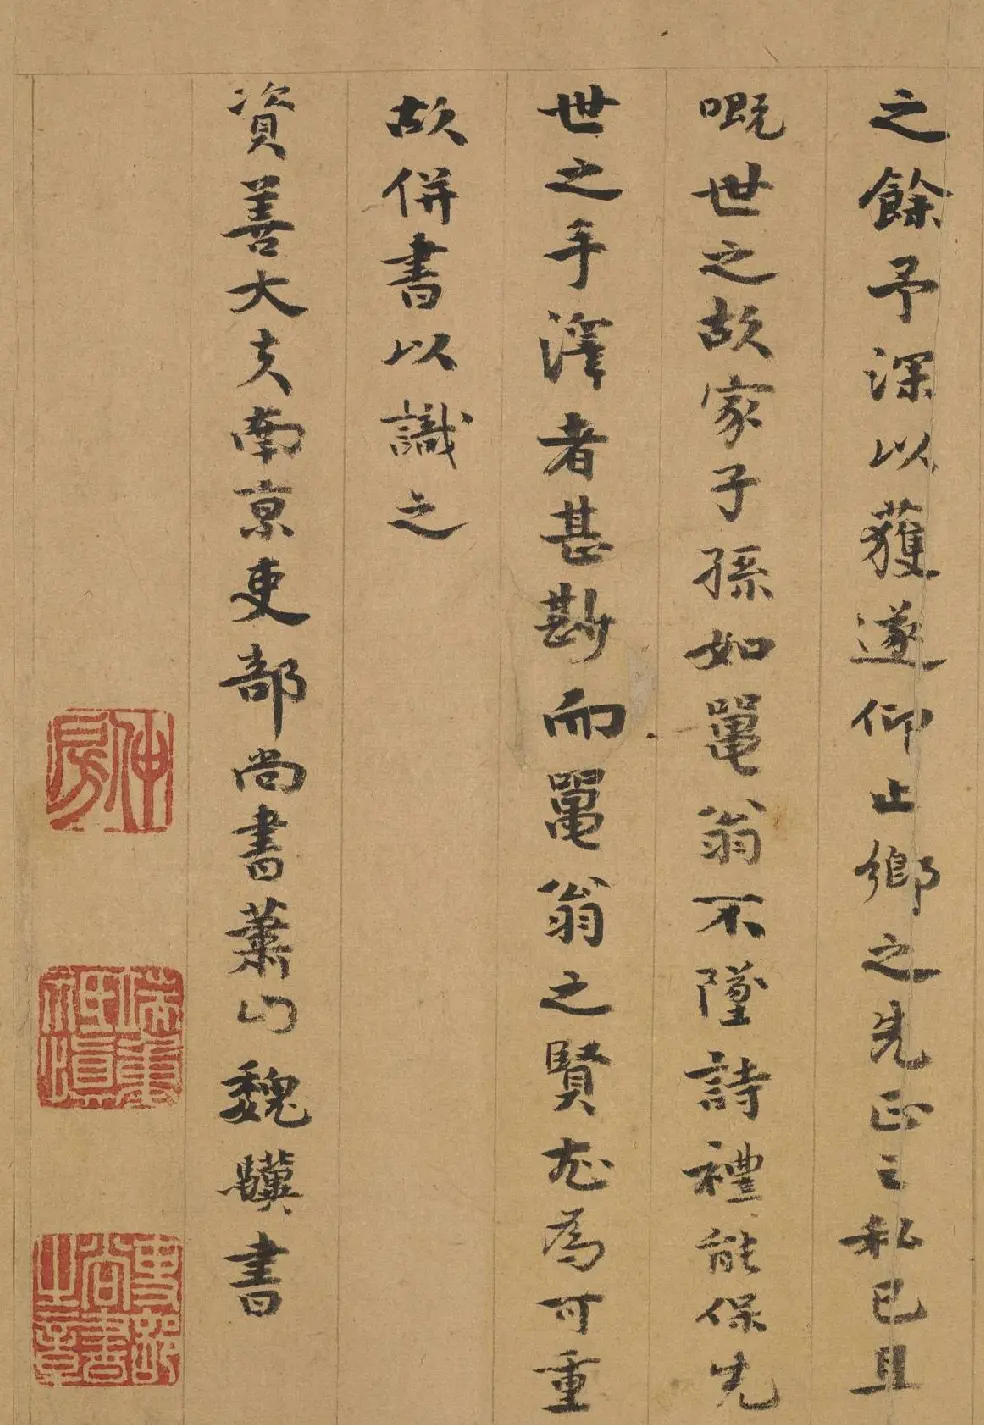 之餘予深以獲遂仰止鄉之先正之私已且
嘅世之故家子孫如鼉翁不墜詩禮能保先
世之手澤者甚尠而鼉翁之賢尤為可重
故併書以識之
資善大夫南京吏部尚書蕭山魏驥書
仲房
吏部尚書之章